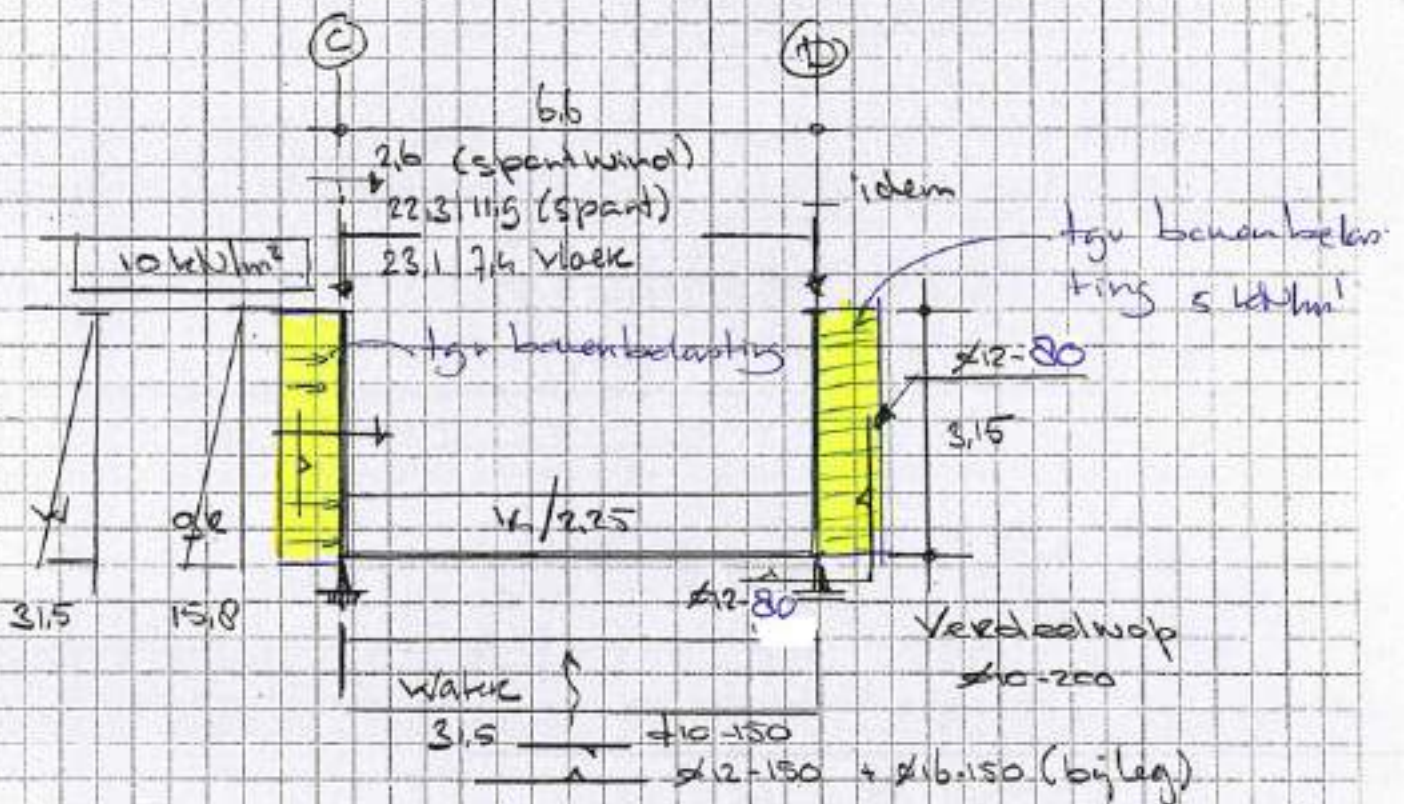 C
D
6,6
2,6 (spantwind)
22,3 | 11,5 (spant)
idem
23,1 | 7,4 vloer
10 kN/m²
tgv bovenbelas-
ting 5 kN/m¹
tgv bovenbelasting
ø12-80
3,15
/2,25
31,5
15,8
ø12-80
Verdeelwap
ø10-200
31,5
ø10-150
ø12-150 + ø16-150 (bijleg)